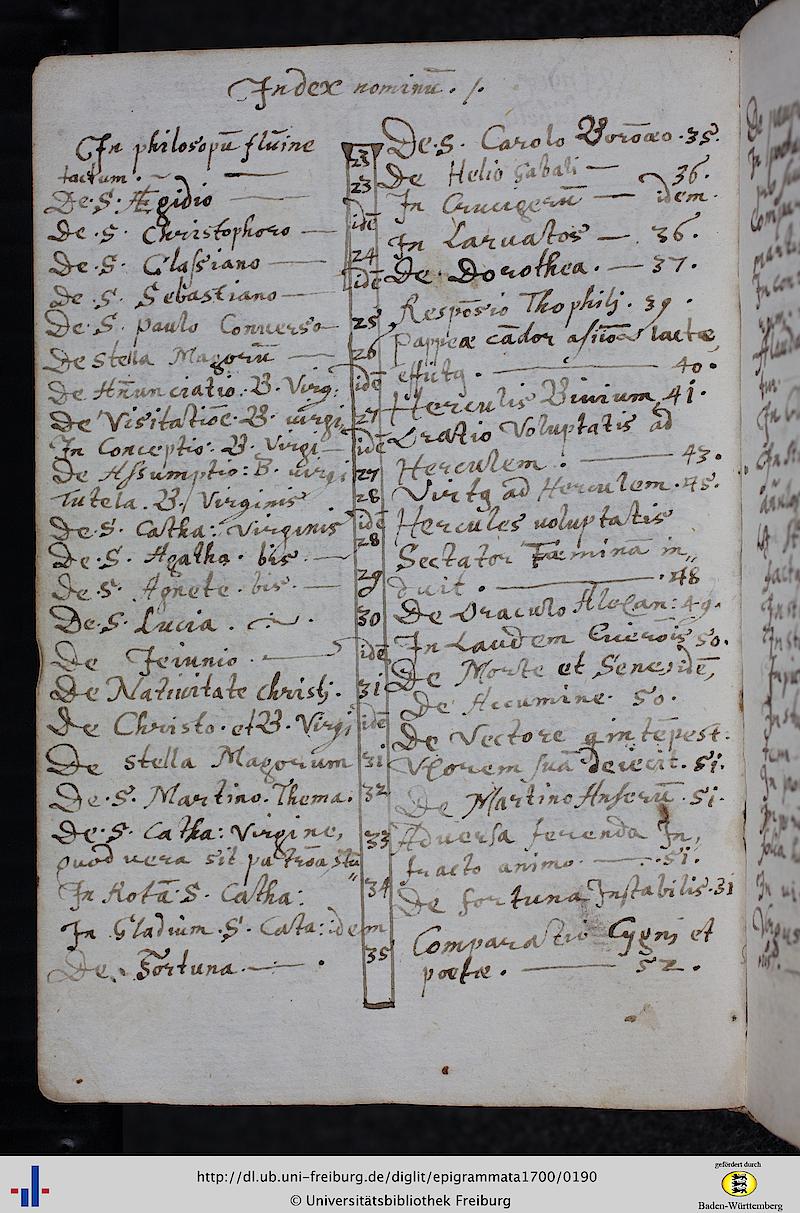 Index nominū. /.
In philosopū flūine
tactum. — — 23
De. S. Ægidio — 23
De. S. Christophoro — idē
De S. Classiano — 24
De S. Sebastiano — idē
De S. Paulo Conuerso — 25
De stella Magorū — 26
De Añunciatio. B. Virg: idē
De Visitatiōe. B. virgi. 27
In Conceptio. B. Virgi — idē
De Assumptio: B. virgi 27
Tutela. B. Virginis 28
De. S. Catha: Virginis idē
De. S. Agatha. bis. — 28
De S. Agnete. bis. — 29
De. S. Lucia. 30
De Ieiunio. — idē
De Natiuitate christi. 31
De Christo. et B. Virgi idē
De stella Magorum 31
De. S. Martino. Thema. 32
De. S. Catha: Virgine,
quod vera sit patrōa 33
In Rotā. S. Catha: 34
In Gladium. S. Cata: idem
De. Fortuna. — . 35
De. S. Carolo Borōæo. 35.
De Helio Gabali — 36.
In Crucigerū — idem.
In Laruatos — . 36.
De Dorothea. — 37.
Respōsio Thophili. 39.
Pappeæ cādor lactæ,
— 40.
Herculis Biuium. 41.
Oratio Voluptatis ad
Herculem. — 43.
ad Herculem. 45.
Hercules uoluptatis
Sectator Fæminā in,,
duit. — . 48
De Oraculo Alexan: 49.
In Laudem Cicerōis 50.
De Morte et Sene, idē,
De Accumine. 50.
De Vectore q in tēpest:
Vxorem suā deiecit. 51.
De Martino Anserū. 51.
Aduersa ferenda In,
fracto animo. — . 51.
De fortuna Instabilis. 31
Comparatio Cygni et
poetæ. — 52.
http://dl.ub.uni-freiburg.de/diglit/epigrammata1700/0190
© Universitätsbibliothek Freiburg
gefördert durch
Baden-Württemberg